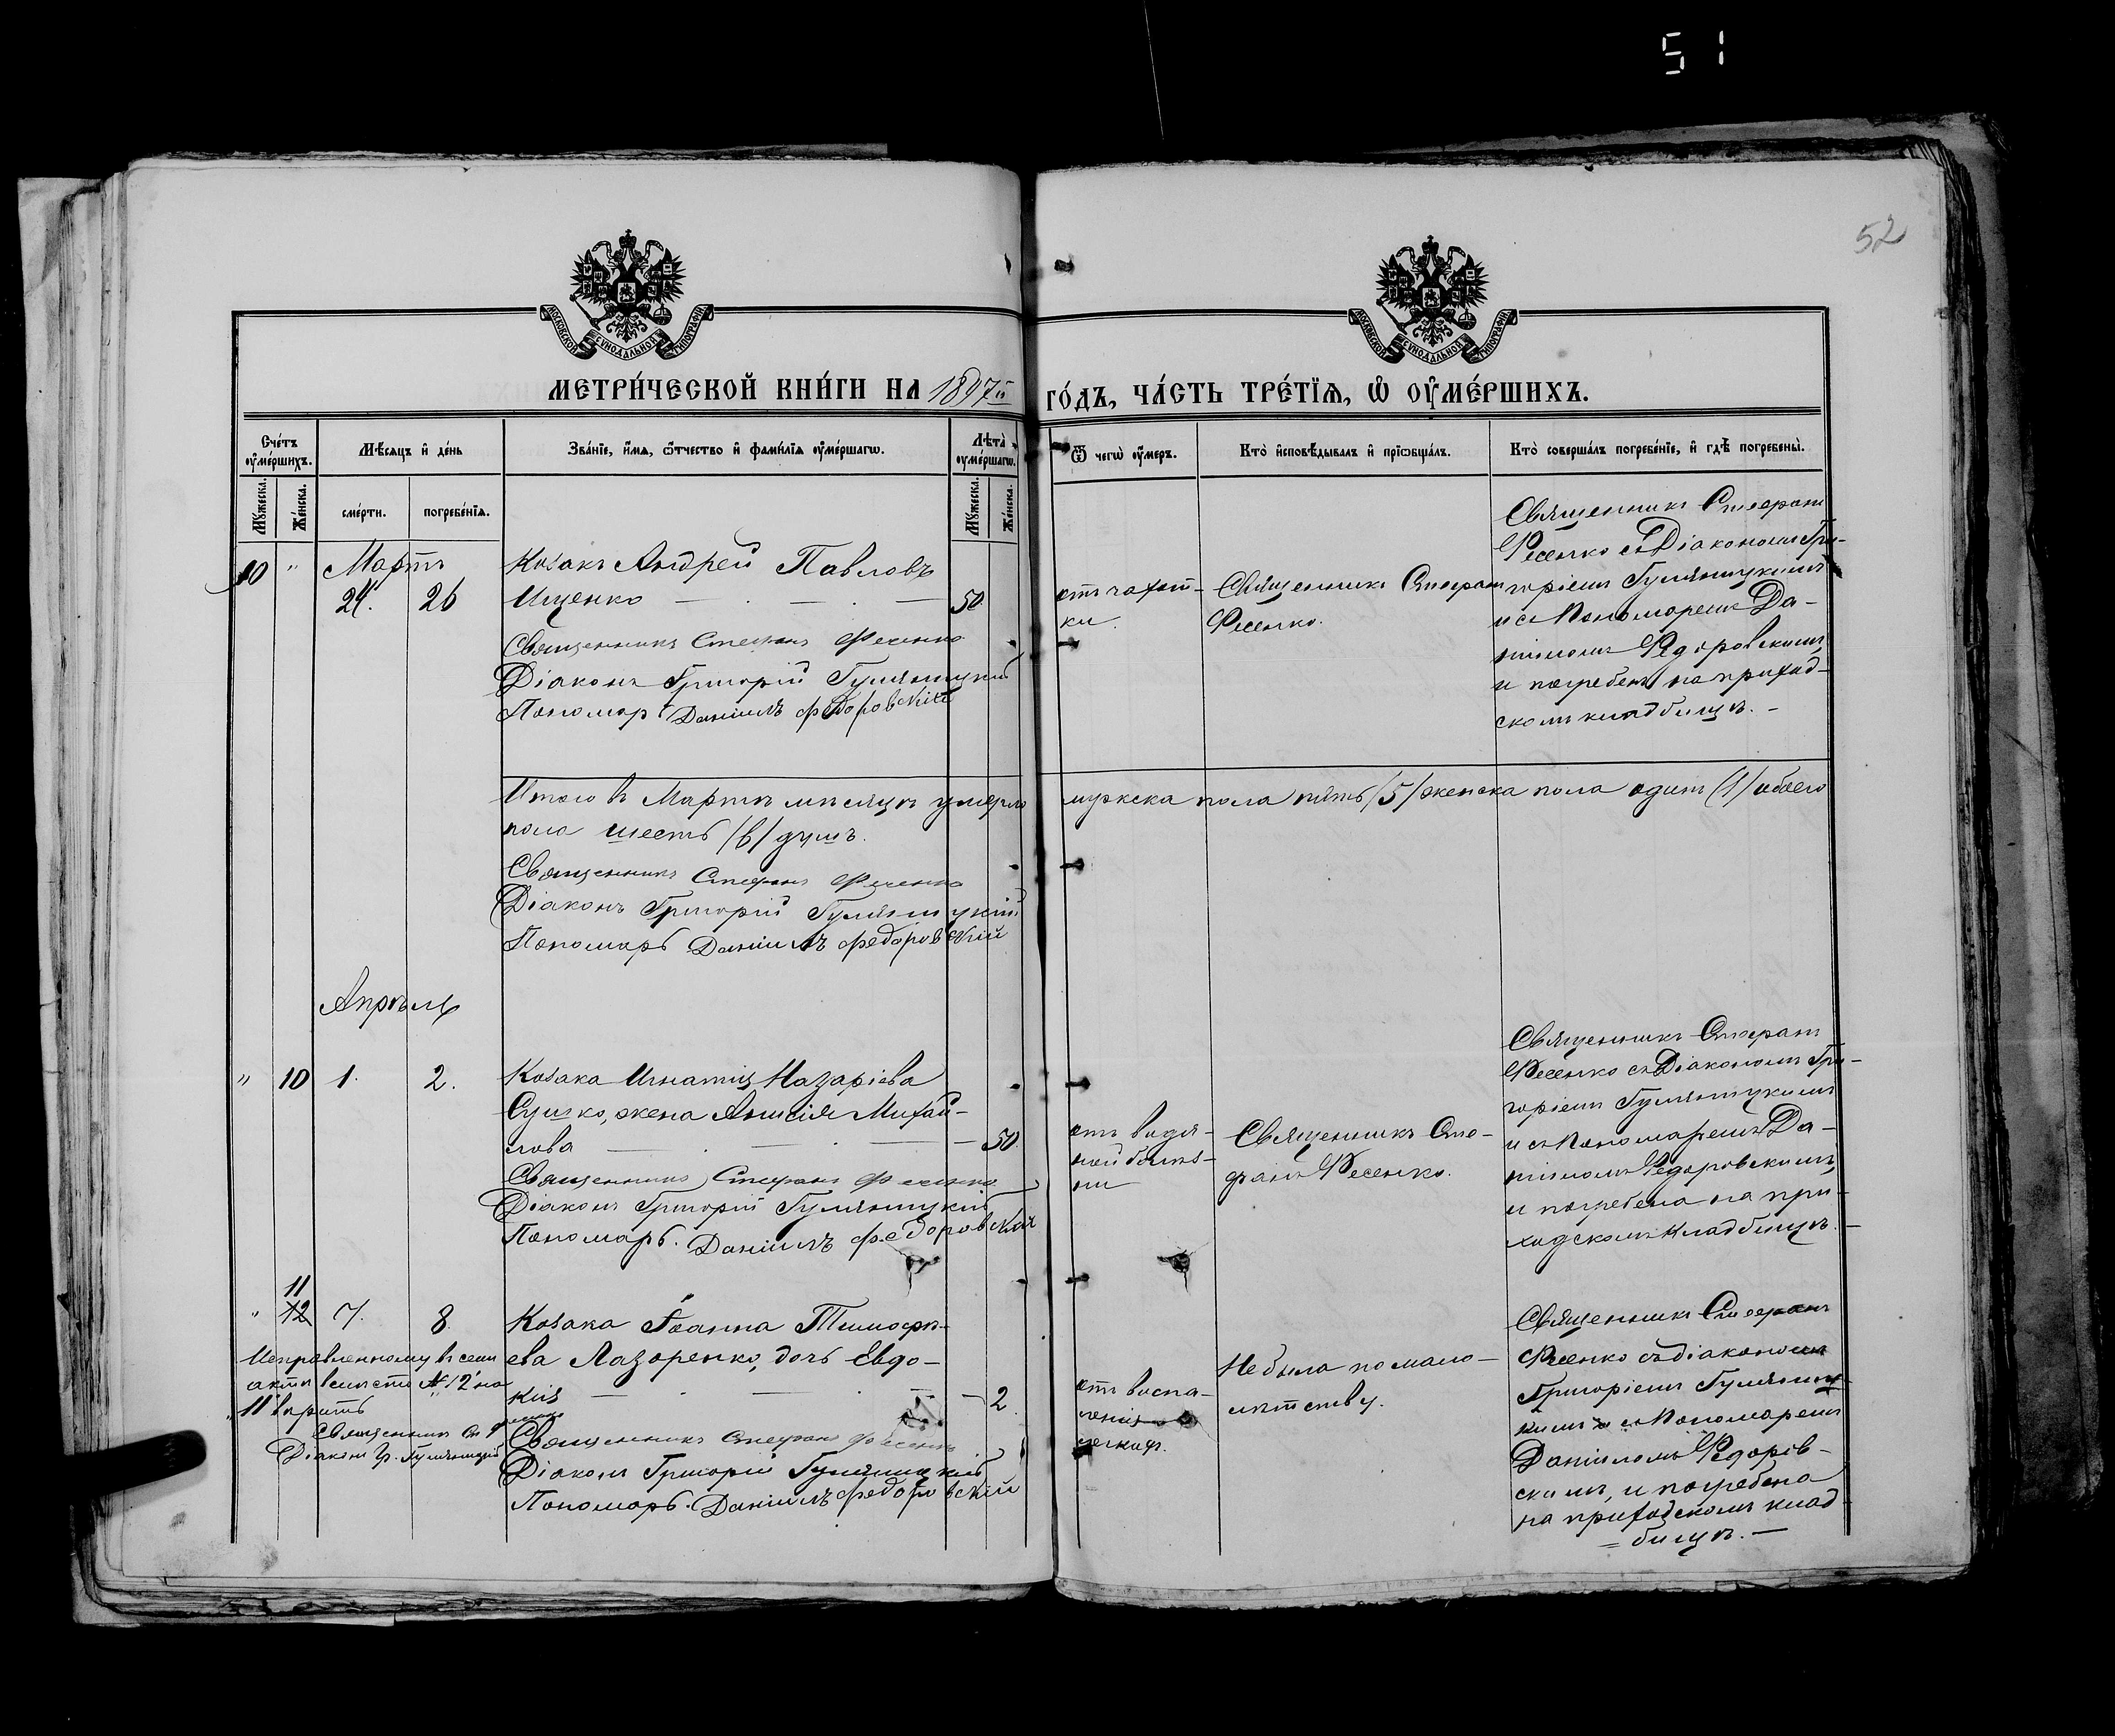 51
52
МОСКОВСКОЙ СУНОДАЛЬНОЙ ТИПОГРАФІИ
МОСКОВСКОЙ СУНОДАЛЬНОЙ ТИПОГРАФІИ
МЕТРИ́ЧЕСКОЙ КНИ́ГИ НА 1897й ГО́ДЪ, ЧА́СТЬ ТРЕ́ТІѦ, Ѡ҆ ОУ҆МЕ́РШИХЪ.
Сче́тъ оу҆ме́ршихъ.
Мꙋ́жеска.
Же́нска.
Мѣ́сяцъ и҆ де́нь
сме́рти.
погребе́нїѧ.
Зва́нїе, и҆́мѧ, ѻ҆́тчество и҆ фами́лїѧ оу҆ме́ршагѡ.
Лѣ́та оу҆ме́ршагѡ.
Мꙋ́жеска.
Же́нска.
Ѿ чегѡ̀ оу҆́меръ.
Кто̀ и҆сповѣ́дывалъ и҆ прїѡбща́лъ.
Кто̀ соверша́лъ погребе́нїе, и҆ гдѣ̀ погребены̀.
10 " Мартъ
24. 26
Козакъ Андрей Павловъ
Ищенко 50
Священникъ Стефанъ Фесенко
Діаконъ Григорій Гуляницкій
Пономарь Даніилъ Федоровскій
отъ чахот-
ки.
Священникъ Стефанъ
Фесенко.
Священникъ Стефанъ
Фесенко съ Діакономъ Гри-
горіемъ Гуляницкимъ
и съ Пономаремъ Да-
ніиломъ Федоровскимъ,
и погребенъ на приход-
скомъ кладбищѣ. –
Итого въ Мартѣ мѣсяцѣ умерло мужска пола пять /5/ женска пола одинъ (1) обоего
пола шесть /6/ душъ.
Священникъ Стефанъ Фесенко
Діаконъ Григорій Гуляницкій
Пономарь Даніилъ Федоровскій
Апрѣль
" 10 1. 2.
Козака Игнатія Назаріева
Сушко, жена Анисія Михай-
лова 50
Священникъ Стефанъ Фесенко
Діаконъ Григорій Гуляницкій
Пономарь. Даніилъ Федоровскій
отъ водя-
ной болѣз-
ни
Священникъ Сте-
фанъ Фесенко.
Священникъ Стефанъ
Фесенко съ Діакономъ Гри-
горіемъ Гуляницкимъ
и съ Пономаремъ Да-
ніиломъ Федоровскимъ,
и погребена на при-
ходскомъ кладбищѣ. –
11
" 12 7. 8.
Козака Іоанна Тимофѣ-
ева Лазоренко, дочь Евдо-
кія 2
Священникъ Стефанъ Фесенко
Діаконъ Григорій Гуляницкій
Пономарь. Даніилъ Федоровскій
Исправленному въ семъ
актѣ вмѣсто № "12" на
"11" вѣрить
Священникъ Ст. Фесенко
Діаконъ Гр. Гуляницкій
отъ воспа-
ленія
легкихъ.
Не была по мало-
лѣтству.
Священникъ Стефанъ
Фесенко съ діакономъ
Григоріемъ Гуляниц-
кимъ и съ Пономаремъ
Даніиломъ Федоров-
скимъ, и погребена
на приходскомъ клад-
=бищѣ. –